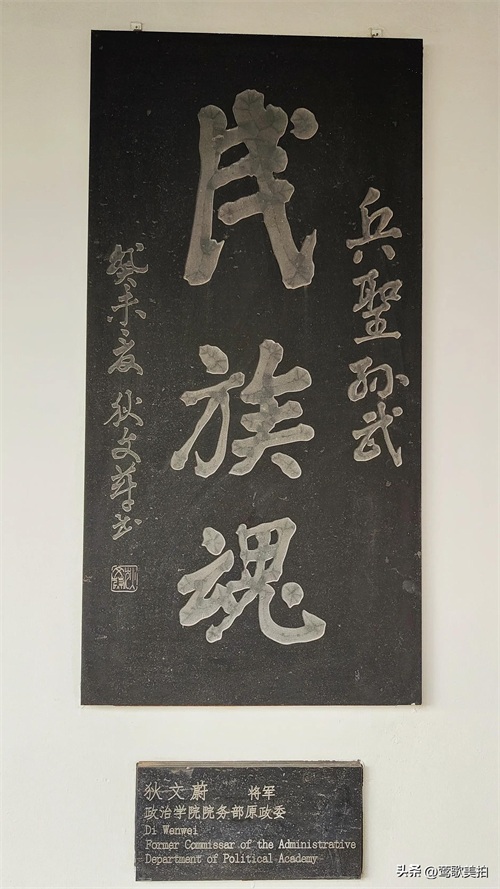 兵聖孫武
民族魂
癸未夏 狄文蔚书
狄文蔚 将军
政治学院院务部原政委
Di Wenwei
Former Commissar of the Administrative
Department of Political Academy
头条 @莺歌美拍